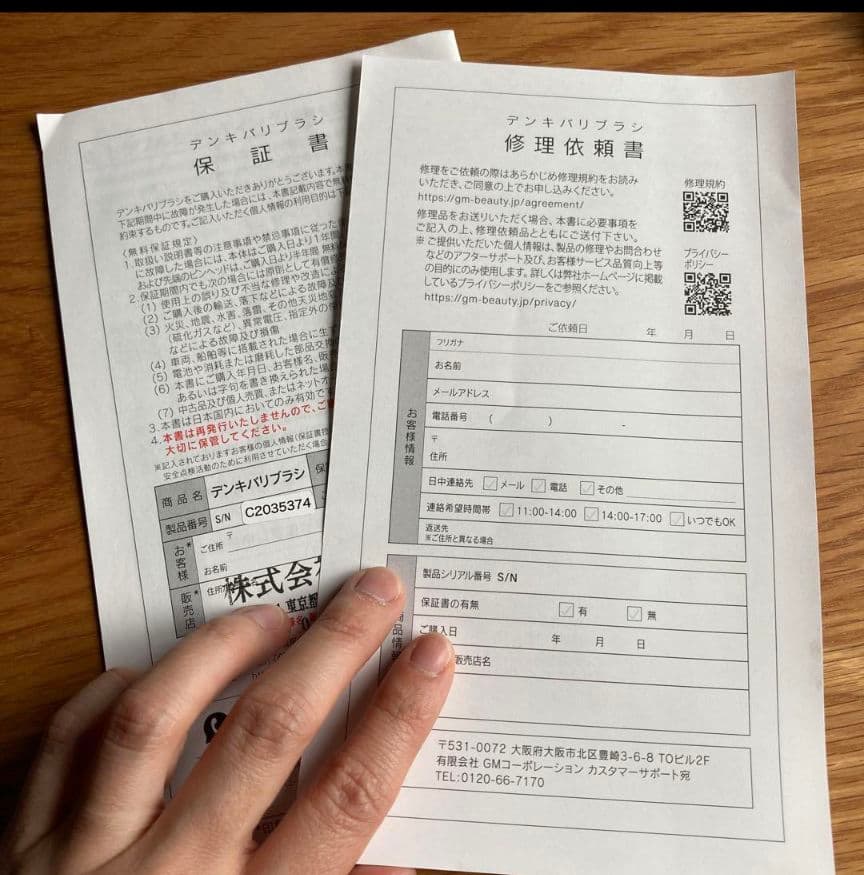 デンキバリブラシ
保証書
デンキバリブラシをご購入いただきありがとうございます。本書
下記期間中に故障が発生した場合には、本書記載内容で無料
約束するものです。ご記入いただく個人情報の利用目的は下
〈無料保証規定〉
1. 取扱い説明書等の注意事項や禁忌事項に従った
に故障した場合には、本体はご購入日より1年間
および先端のピンヘッドは、ご購入日より半年間 無料
2. 保証期間内でも次の場合には原則として有償修
(1) 使用上の誤り及び不当な修理や改造による故障及び
(2) ご購入後の輸送、落下などによる故障及
(3) 火災、地震、水害、落雷、その他天災地
(硫化ガスなど)、異常電圧、指定外の
などによる故障及び損傷
(4) 車両、船舶等に搭載された場合に生
(5) 電池や消耗または磨耗した部品交換
(6) 本書にご購入年月日、お客様名、販
あるいは字句を書き換えられた場
(7) 中古品及び個人売買、またはネットオ
3. 本書は日本国内においてのみ有効です
4. 本書は再発行いたしませんので、ご
大切に保管してください。
※記入されておりますお客様の個人情報(保証書
安全点検活動のために利用させていただく場合
商品名 デンキバリブラシ 保
製品番号 S/N C2035374
お客様* ご住所 〒
お名前
販売店* 住所
株式会
東京都
デンキバリブラシ
修理依頼書
修理をご依頼の際はあらかじめ修理規約をお読み
いただき、ご同意の上でお申し込みください。
https://gm-beauty.jp/agreement/
修理規約
修理品をお送りいただく場合、本書に必要事項を
ご記入の上、修理依頼品とともにご送付下さい。
※ ご提供いただいた個人情報は、製品の修理やお問合わせ
などのアフターサポート及び、お客様サービス品質向上等
の目的にのみ使用します。詳しくは弊社ホームページに掲載
しているプライバシーポリシーをご参照ください。
https://gm-beauty.jp/privacy/
プライバシー
ポリシー
ご依頼日 年 月 日
お客様情報
フリガナ
お名前
メールアドレス
電話番号 ( ) -
〒
住所
日中連絡先 メール 電話 その他
連絡希望時間帯 11:00-14:00 14:00-17:00 いつでもOK
返送先
※ご住所と異なる場合
商品情報
製品シリアル番号 S/N
保証書の有無 有 無
ご購入日 年 月 日
販売店名
〒531-0072 大阪府大阪市北区豊崎3-6-8 TOビル2F
有限会社 GMコーポレーション カスタマーサポート宛
TEL:0120-66-7170